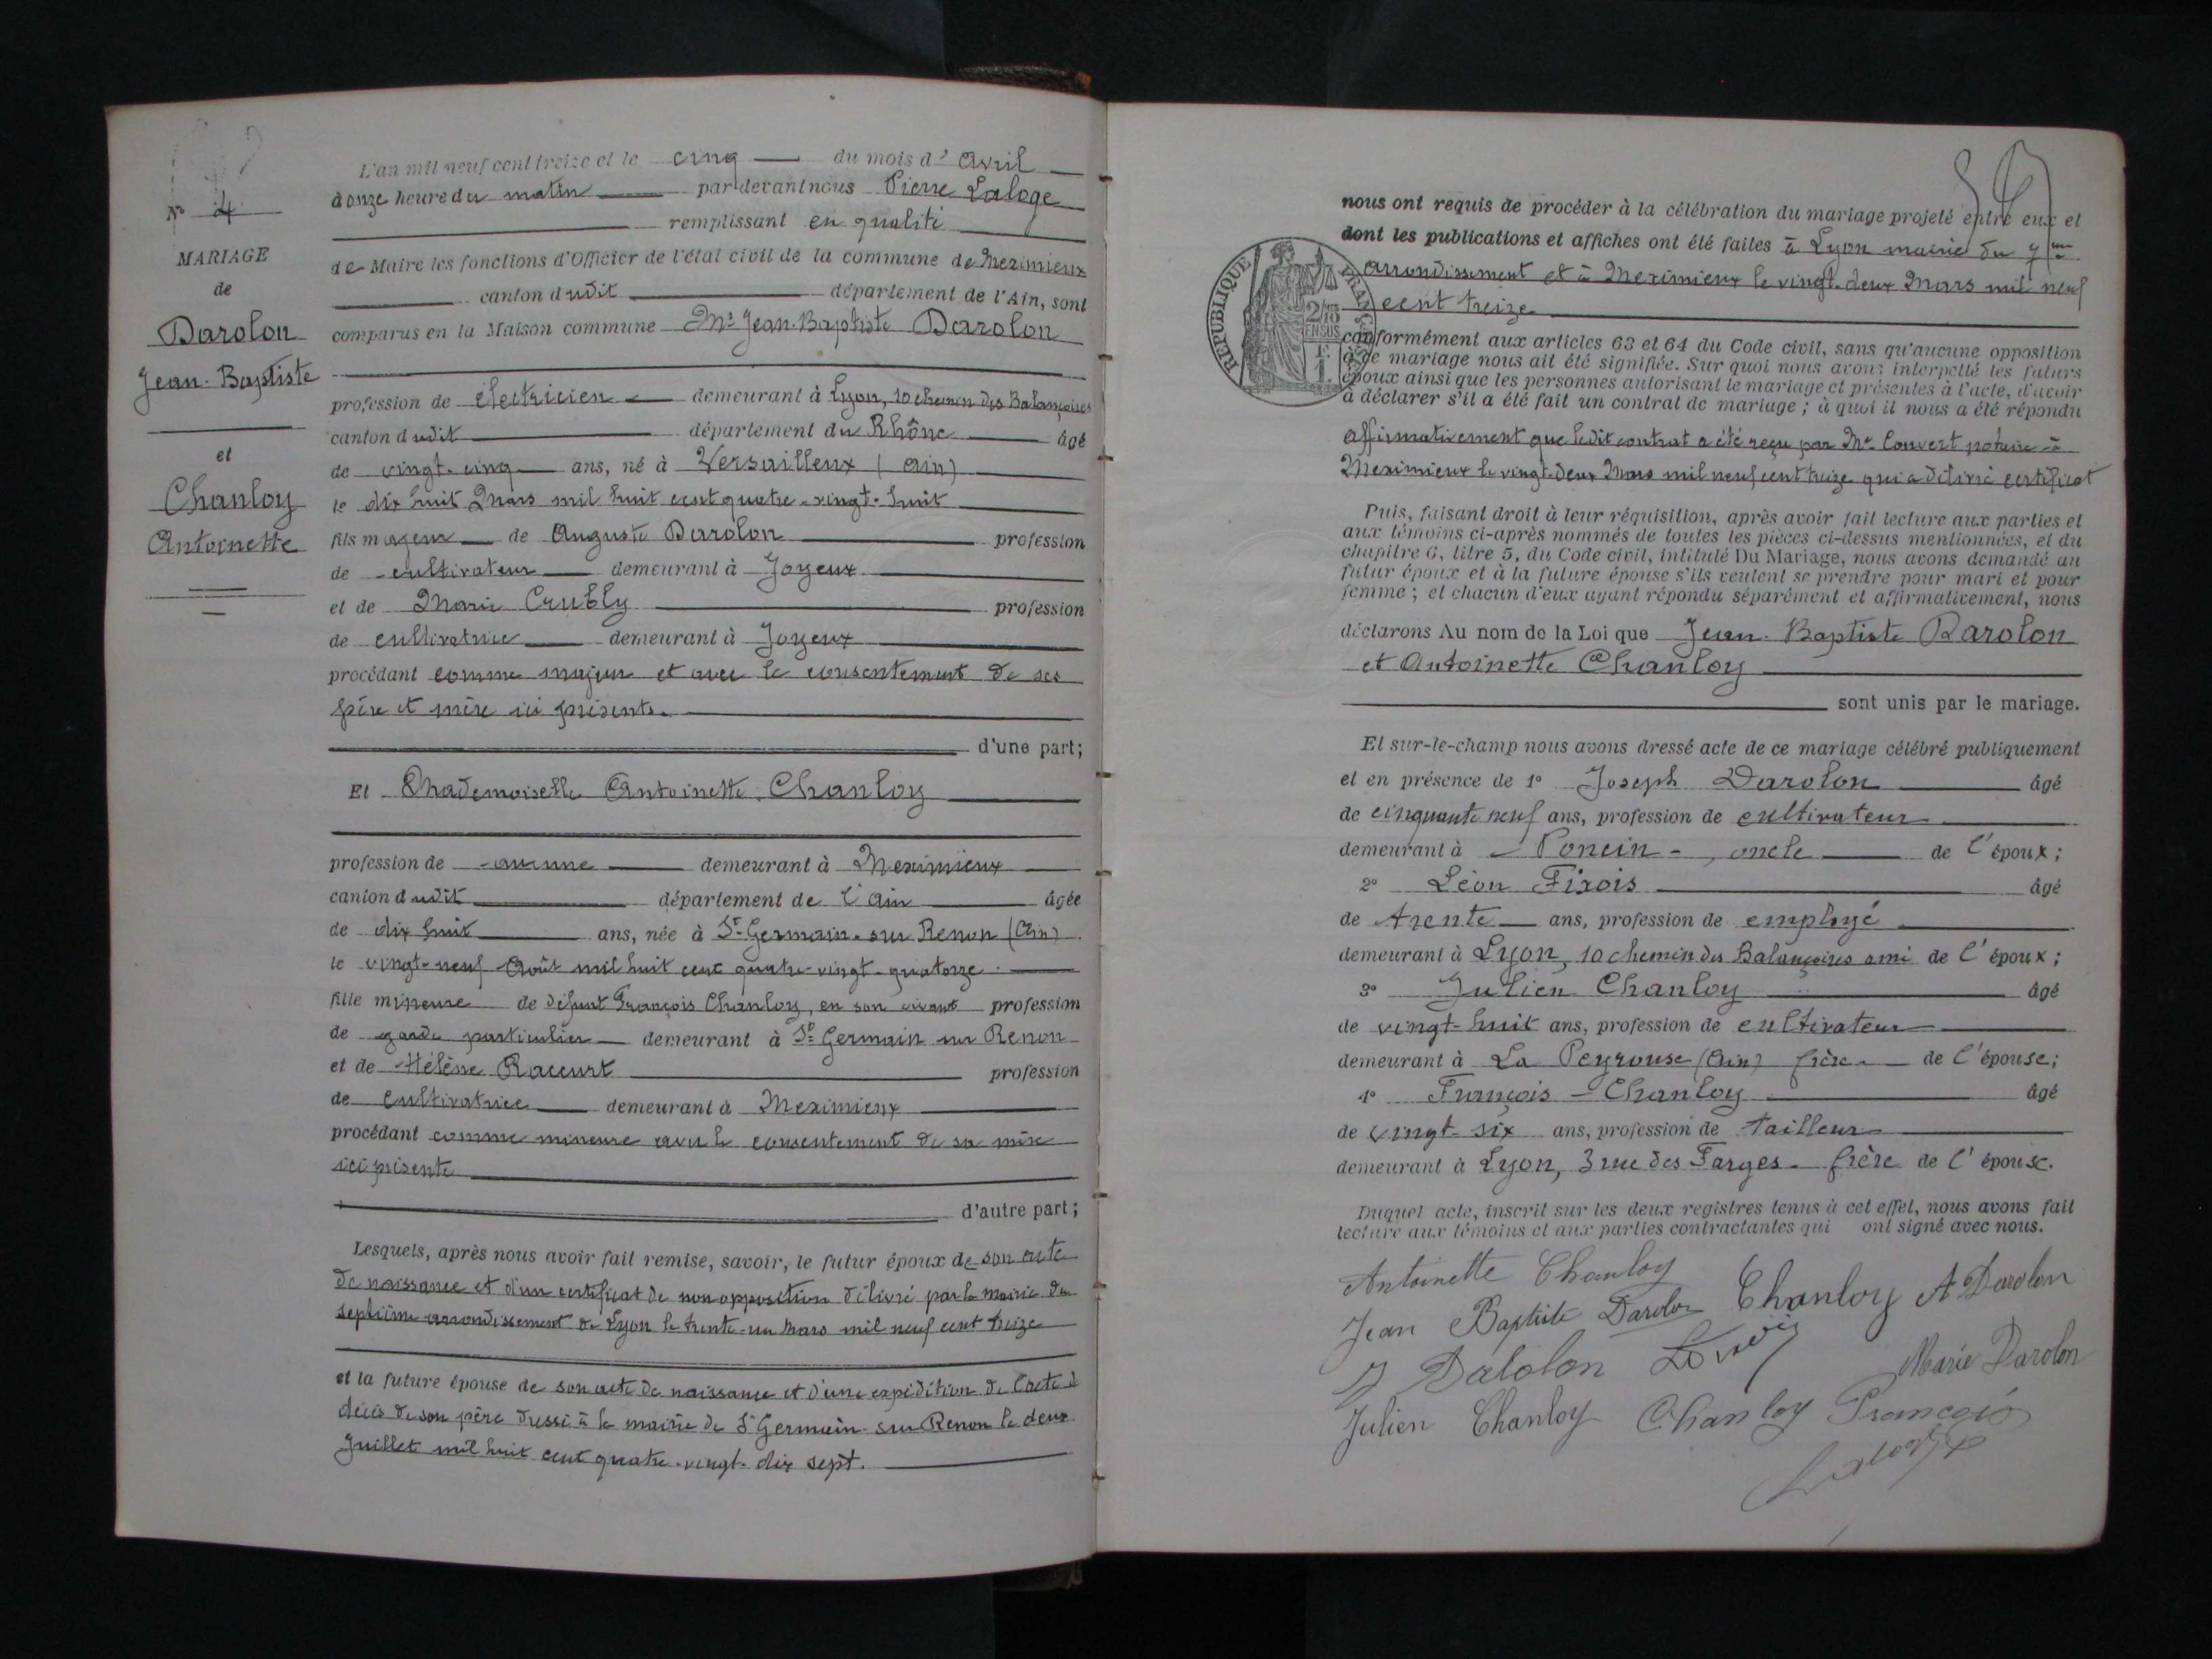 N° 4
MARIAGE
de
Darolon
Jean-Baptiste
et
Chanloy
Antoinette
L'an mil neuf cent treize et le cinq du mois d' Avril
à onze heure du matin par devant nous Pierre Laloge
remplissant en qualité
de Maire les fonctions d'Officier de l'état civil de la commune de Meximieux
canton dudit département de l'Ain, sont
comparus en la Maison commune Mr Jean-Baptiste Darolon
profession de électricien demeurant à Lyon, 10 chemin des Balançoires
canton dudit département du Rhône âgé
de vingt-cinq ans, né à Versailleux (Ain)
le dix huit Mars mil huit cent quatre-vingt-huit
fils majeur de Auguste Darolon profession
de cultivateur demeurant à Joyeux
et de Marie Crubly profession
de cultivatrice demeurant à Joyeux
procédant comme majeur et avec le consentement de ses
père et mère ici présents.
d'une part;
Et Mademoiselle Antoinette Chanloy
profession de aucune demeurant à Meximieux
canton dudit département de l'Ain âgée
de dix huit ans, née à St Germain-sur Renon (Ain)
le vingt-neuf Août mil huit cent quatre-vingt-quatorze
fille mineure de défunt François Chanloy, en son vivant profession
de garde particulier demeurant à St Germain sur Renon
et de Hélène Raccurt profession
de cultivatrice demeurant à Meximieux
procédant comme mineure avec le consentement de sa mère
ici présente
d'autre part;
Lesquels, après nous avoir fait remise, savoir, le futur époux de son acte
de naissance et d'un certificat de non opposition délivré par la mairie du
septième arrondissement de Lyon le trente-un Mars mil neuf cent treize
et la future épouse de son acte de naissance et d'une expédition de l'acte de
décès de son père dressé à la mairie de St Germain-sur Renon le deux
Juillet mil huit cent quatre-vingt-dix sept.
nous ont requis de procéder à la célébration du mariage projeté entre eux et
dont les publications et affiches ont été faites à Lyon mairie du 7me
arrondissement et à Meximieux le vingt-deux Mars mil neuf
cent treize
RÉPUBLIQUE FRANÇAISE
2/10 EN SUS
conformément aux articles 63 et 64 du Code civil, sans qu'aucune opposition
à ce mariage nous ait été signifiée. Sur quoi nous avons interpellé les futurs
époux ainsi que les personnes autorisant le mariage et présentes à l'acte, d'avoir
à déclarer s'il a été fait un contrat de mariage; à quoi il nous a été répondu
affirmativement que ledit contrat a été reçu par Me Convert notaire à
Meximieux le vingt-deux Mars mil neuf cent treize qui a délivré certificat
Puis, faisant droit à leur réquisition, après avoir fait lecture aux parties et
aux témoins ci-après nommés de toutes les pièces ci-dessus mentionnées, et du
chapitre 6, titre 5, du Code civil, intitulé Du Mariage, nous avons demandé au
futur époux et à la future épouse s'ils veulent se prendre pour mari et pour
femme; et chacun d'eux ayant répondu séparément et affirmativement, nous
déclarons Au nom de la Loi que Jean-Baptiste Darolon
et Antoinette Chanloy
sont unis par le mariage.
Et sur-le-champ nous avons dressé acte de ce mariage célébré publiquement
et en présence de 1° Joseph Darolon âgé
de cinquante neuf ans, profession de cultivateur
demeurant à Poncin, oncle de l'époux;
2° Léon Fixois âgé
de trente ans, profession de employé
demeurant à Lyon, 10 chemin des Balançoires ami de l'époux;
3° Julien Chanloy âgé
de vingt-huit ans, profession de cultivateur
demeurant à La Peyrouse (Ain) frère de l'épouse;
4° François Chanloy âgé
de vingt-six ans, profession de tailleur
demeurant à Lyon, 3 rue des Farges. frère de l'épouse.
Duquel acte, inscrit sur les deux registres tenus à cet effet, nous avons fait
lecture aux témoins et aux parties contractantes qui ont signé avec nous.
Antoinette Chanloy
Jean Baptiste Darolon Chanloy A Darolon
J Dalolon Marie Darolon
Julien Chanloy Chanloy François
Laloge